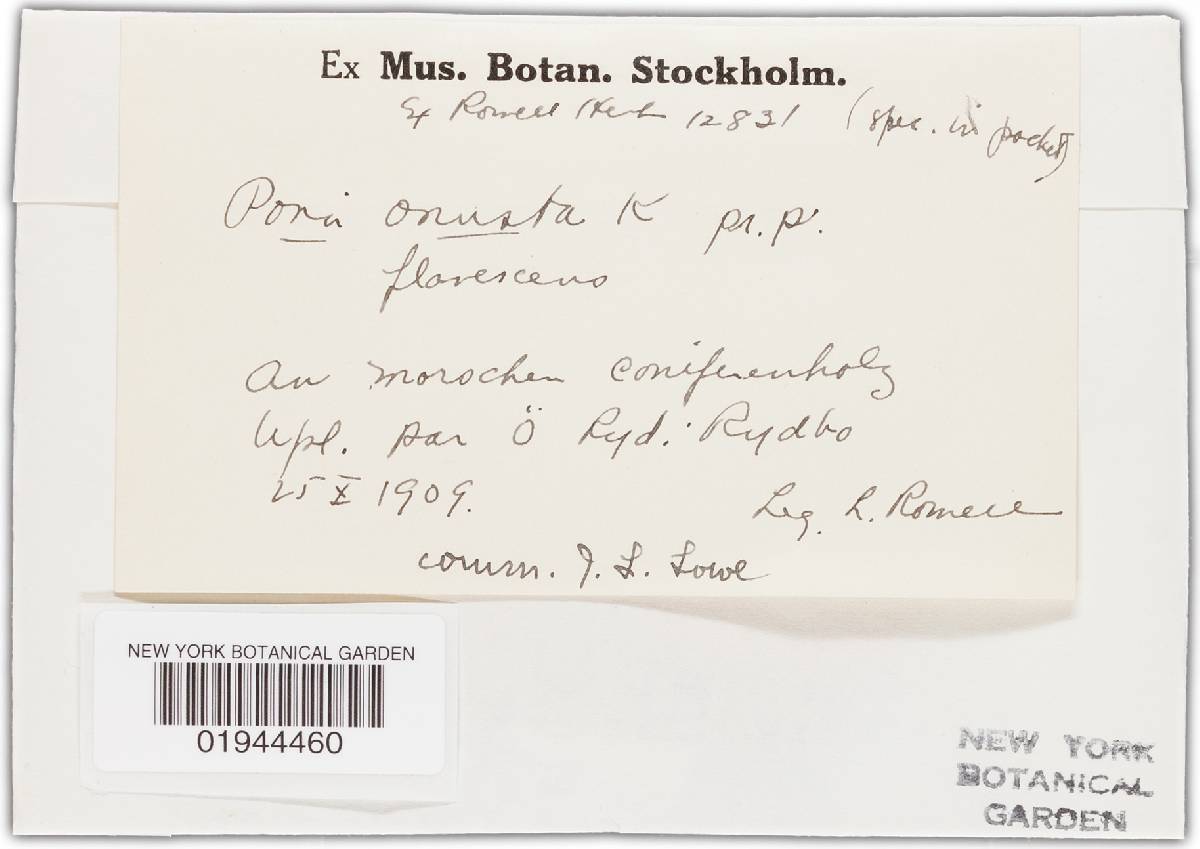 Ex Mus. Botan. Stockholm.
Ex Romell Herb 12831 (spec. in pocket)
Poria onusta K pr. p.
flavescens
an morschen Coniferenholz
Upl. par Ö Ryd: Rydbo
25 X 1909.
Leg. L. Romell
comm. J. L. Lowe
NEW YORK BOTANICAL GARDEN
01944460
NEW YORK
BOTANICAL
GARDEN